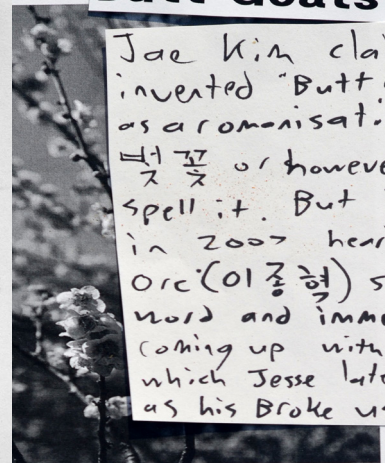 Goats
Jae Kim cla
invented "Butt
as a romanisat
벚꽃 or howeve
spell it. But
in 2007 hear
Orc (이종혁) s
word and imme
coming up with
which Jesse late
as his Broke us